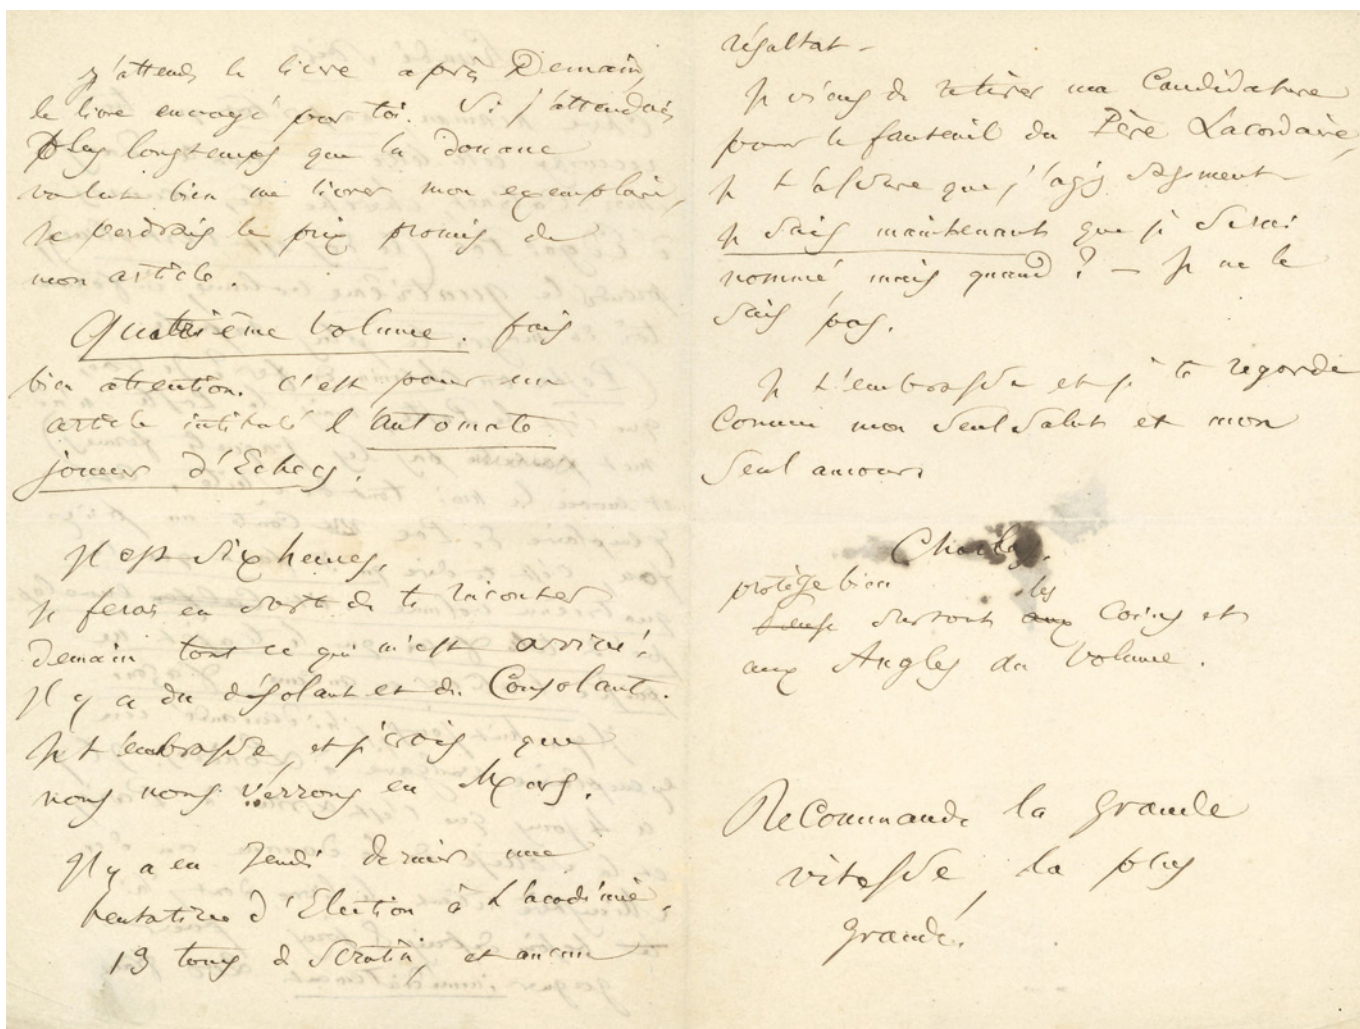 j'attends le livre après Demain,
le livre envoyé par toi. Si j'attendais
plus longtemps que la douane
voulut bien me livrer mon exemplaire,
je perdrais le prix promis de
mon article.
Quatrième volume. fais
bien attention. C'est pour un
article intitulé l'automate
joueur d'Echecs.
Il est six heures,
je ferai en sorte de te raconter
Demain tout ce qui m'est arrivé.
Il y a du désolant et du Consolant.
Je t'embrasse, et je crois que
nous nous verrons en Mars.
Il y a eu Jeudi dernier une
tentative d'Election à L'académie.
13 tours de Scrutin, et aucun
résultat -
Je viens de retirer ma Candidature
pour le fauteuil du Père Lacordaire,
je t'assure que j'agis sagement
je sais maintenant que je serai
nommé, mais quand ? — Je ne le
sais pas.
Je t'embrasse et je te regarde
Comme mon seul salut et mon
seul amour.
Charles.
protège bien
surtout les Coins et
aux Angles du Volume.
Recommande la grande
vitesse, la plus
grande.